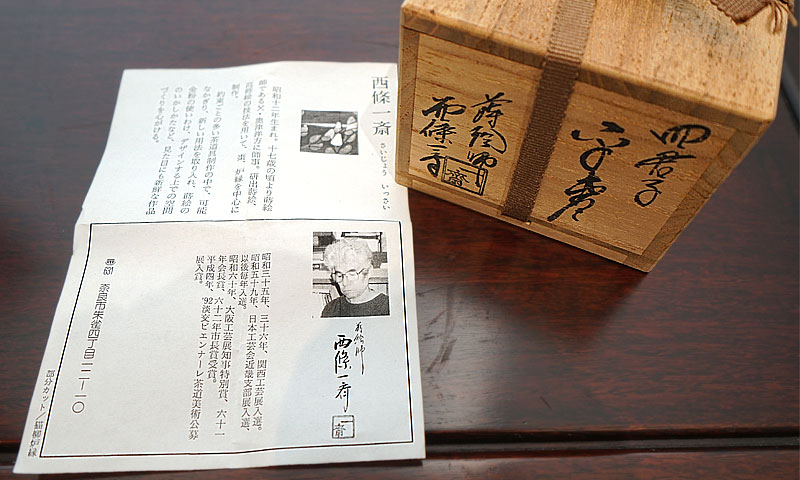 四君子
平棗
蒔絵師
西條一斎
一斎
西條一斎 さいじょう いっさい
昭和十二年生まれ。十七歳の頃より蒔絵
師である父・奥津洋方に師事。研出蒔絵、
高蒔絵の技法を用いて、棗、炉縁を中心に
制作。
約束ごとの多い茶道具制作の中で、可能
なかぎり、新しい用法を取り入れ、蒔絵の
金粉の使いわけ、デザインする上での空間
のいかしかたなど、見た目にも新鮮な作品
づくりを心がける。
蒔絵師
西條一斎
一斎
昭和三十五年、三十六年、関西工芸展入選。
昭和五十九年、日本工芸会近畿支部展入選、
以後毎年入選。
昭和六十年、大阪工芸展知事特別賞、六十一
年会長賞、六十二年市長賞受賞。
平成四年、'92淡交ビエンナーレ茶道美術公募
展入賞。
奈良市朱雀四丁目二二―一〇
部分カット／猫柳炉縁